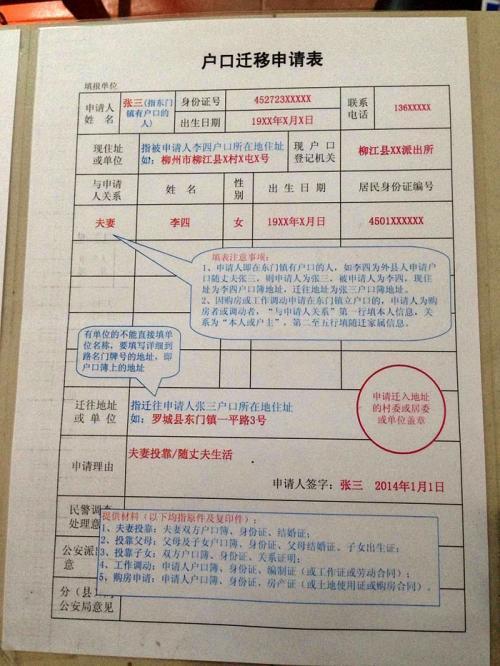 户口迁移申请表
填报单位
申请人
姓 名
张三(指东门
镇有户口的
人)
身份证号
452723XXXXX
出生日期
19XX年X月X日
联系
电话
136XXXXX
现住址
或单位
指被申请人李四户口所在地住址
如：柳州市柳江县X村X屯X号
现 户 口
登记机关
柳江县XX派出所
与申请
人关系
姓 名
性
别
出 生 日 期
居民身份证编号
夫妻
李四
女
19XX年X月日
4501XXXXXX
填表注意事项：
1、申请人即在东门镇有户口的人，如李四为外县人申请户
口随丈夫张三，则申请人为张三，被申请人为李四，现住
址为李四户口簿地址，迁往地址为张三户口簿地址。
2、因购房或工作调动申请在东门镇立户口的，申请人为购
房者或调动者，“与申请人关系”第一行填本人信息，关
系为“本人或户主”，第二至五行填随迁家属信息。
有单位的不能直接填单
位名称，要填写详细到
路名门牌号的地址，即
户口簿上的地址
迁往地址
或 单 位
指迁往申请人张三户口所在地住址
如：罗城县东门镇一平路3号
申请迁入地址
的村委或居委
或单位盖章
申请理由
夫妻投靠/随丈夫生活
申请人签字：张三 2014年1月1日
民警调查
处理意
提供材料（以下均指原件及复印件）：
1、夫妻投靠：夫妻双方户口簿、身份证、结婚证；
2、投靠父母：父母及子女户口簿、身份证、父母结婚证、子女出生证；
3、投靠子女：双方户口簿、身份证、关系证明；
4、工作调动：申请人户口簿、身份证、编制证（或工作证或劳动合同）；
5、购房申请：申请人户口簿、身份证、房产证（或土地使用证或购房合同）。
公安派
意
分（县
公安局意见